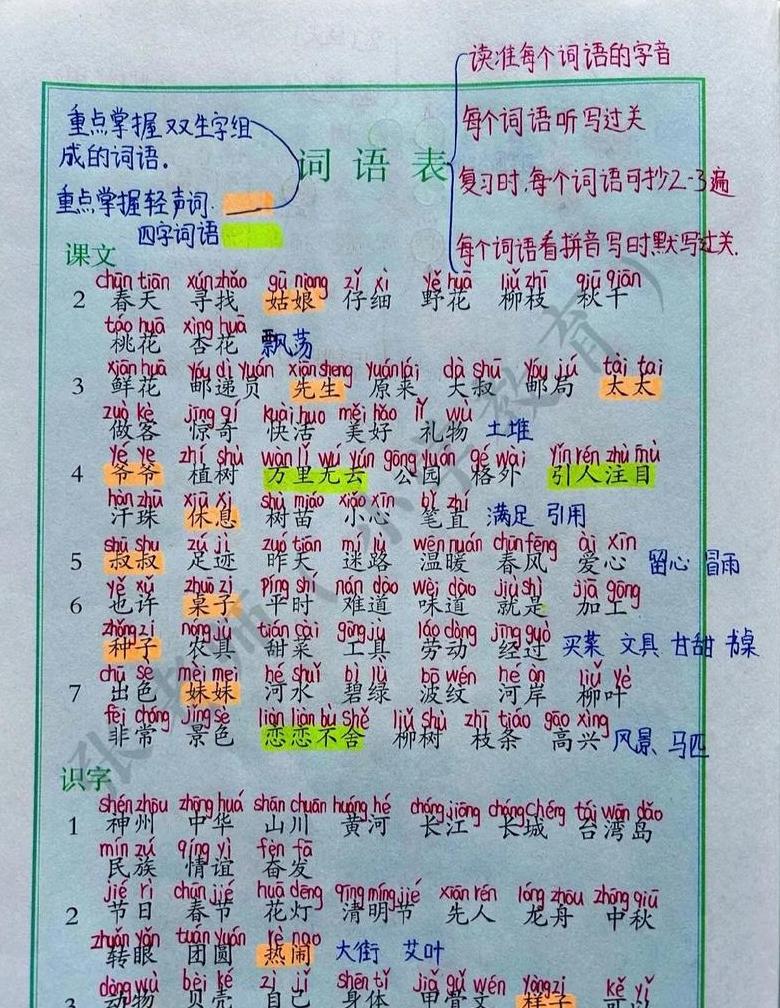 读准每个词语的字音
每个词语听写过关
复习时,每个词语可抄2-3遍
每个词语看拼音写时默写过关.
重点掌握双生字组
成的词语。
重点掌握轻声词.
四字词语
词语表
课文
chūn tiān xún zhǎo gū niang zǐ xì yě huā liǔ zhī qiū qiān
2 春天 寻找 姑娘 仔细 野花 柳枝 秋千
táo huā xìng huā
桃花 杏花 飘荡
xiān huā yóu dì yuán xiān sheng yuán lái dà shū yóu jú tài tai
3 鲜花 邮递员 先生 原来 大叔 邮局 太太
zuò kè jīng qí kuài huo měi hǎo lǐ wù
做客 惊奇 快活 美好 礼物 土堆
yé ye zhí shù wàn lǐ wú yún gōng yuán gé wài yǐn rén zhù mù
4 爷爷 植树 万里无云 公园 格外 引人注目
hàn zhū xiū xi shù miáo xiǎo xīn bǐ zhí
汗珠 休息 树苗 小心 笔直 满足 引用
shū shu zú jì zuó tiān mí lù wēn nuǎn chūn fēng ài xīn
5 叔叔 足迹 昨天 迷路 温暖 春风 爱心 留心 冒雨
yě xǔ zhuō zi píng shí nán dào wèi dào jiù shì jiā gōng
6 也许 桌子 平时 难道 味道 就是 加工
zhǒng zi nóng jù tián cài gōng jù láo dòng jīng guò
种子 农具 甜菜 工具 劳动 经过 买菜 文具 甘甜 书桌
chū sè mèi mei hé shuǐ bì lǜ bō wén hé àn liǔ yè
7 出色 妹妹 河水 碧绿 波纹 河岸 柳叶
fēi cháng jǐng sè liàn liàn bù shě liǔ shù zhī tiáo gāo xìng
非常 景色 恋恋不舍 柳树 枝条 高兴 风景 马匹
识字
shén zhōu zhōng huá shān chuān huáng hé cháng jiāng cháng chéng tái wān dǎo
1 神州 中华 山川 黄河 长江 长城 台湾岛
mín zú qíng yì fèn fā
民族 情谊 奋发
jié rì chūn jié huā dēng qīng míng jié xiān rén lóng zhōu zhōng qiū
2 节日 春节 花灯 清明节 先人 龙舟 中秋
zhuǎn yǎn tuán yuán rè nao
转眼 团圆 热闹 大街 艾叶
dòng wù bèi ké zì jǐ shēn tǐ jiǎ gǔ wén yàng zi kě yǐ
3 动物 贝壳 自己 身体 甲骨文 样子 可以